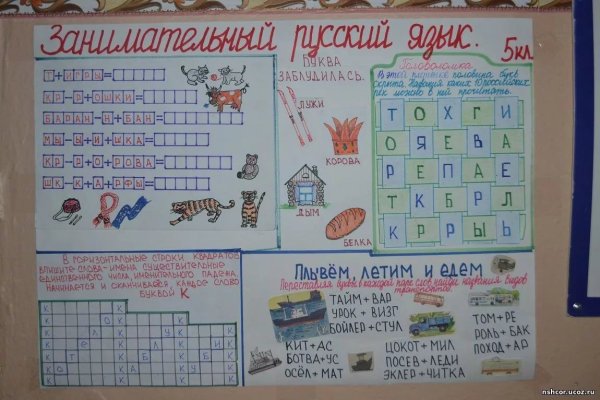 Занимательный русский язык.
5кл
Т+ИГРЫ=
КР-Р+ОШКИ=
БАРАН-Н+БАН=
МЫ-Ы+ШКА=
КР-Р+О+РОВА=
ШК-К+АРФЫ=
БУКВА
ЗАБЛУДИЛАСЬ.
ЛУЖИ
КОРОВА
ДЫМ
БЕЛКА
Головоломка.
В этой таблице половина букв
скрыта. Названия каких
рек можно в ней прочитать.
Т О Х Г И
О Я Е В А
Р Е П А Е
Т К Б Р Л
К Р Р Ы Ь
В ГОРИЗОНТАЛЬНЫЕ СТРОКИ КВАДРАТОВ
ВПИШИТЕ СЛОВА-ИМЕНА СУЩЕСТВИТЕЛЬНЫЕ
ЕДИНСТВЕННОГО ЧИСЛА, ИМЕНИТЕЛЬНОГО ПАДЕЖА,
НАЧИНАЕТСЯ И СКАНЧИВАЕТСЯ, КАЖДОЕ СЛОВО
БУКВОЙ К
Плывём, летим и едем
Переставляя буквы в каждой паре слов найди названия видов
транспортов.
ТАЙМ+ВАР
УРОК+ВИЗГ
БОЙЛЕР+СТУЛ
КИТ+АС
БОТВА+УС
ОСЁЛ+МАТ
ЦОКОТ+МИЛ
ПОСЕВ+ЛЕДИ
ЭКЛЕР+ЧИТКА
ТОМ+РЕ
РОЛЬ+БАК
ПОХОД+АР
nshcor.ucoz.ru